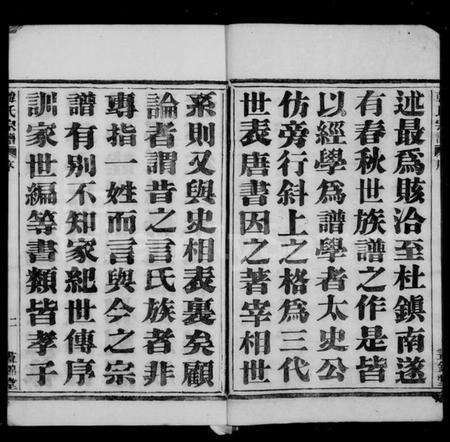 述最爲賅洽至杜鎮南遂
有春秋世族譜之作是皆
以經學爲譜學者太史公
仿旁行斜上之格爲三代
世表唐書因之著宰相世
系則又與史相表裏矣顧
論者謂昔之言氏族者非
專指一姓而言與今之宗
譜有別不知家紀世傳序
訓家世編等書類皆孝子
氏宗譜
序
二